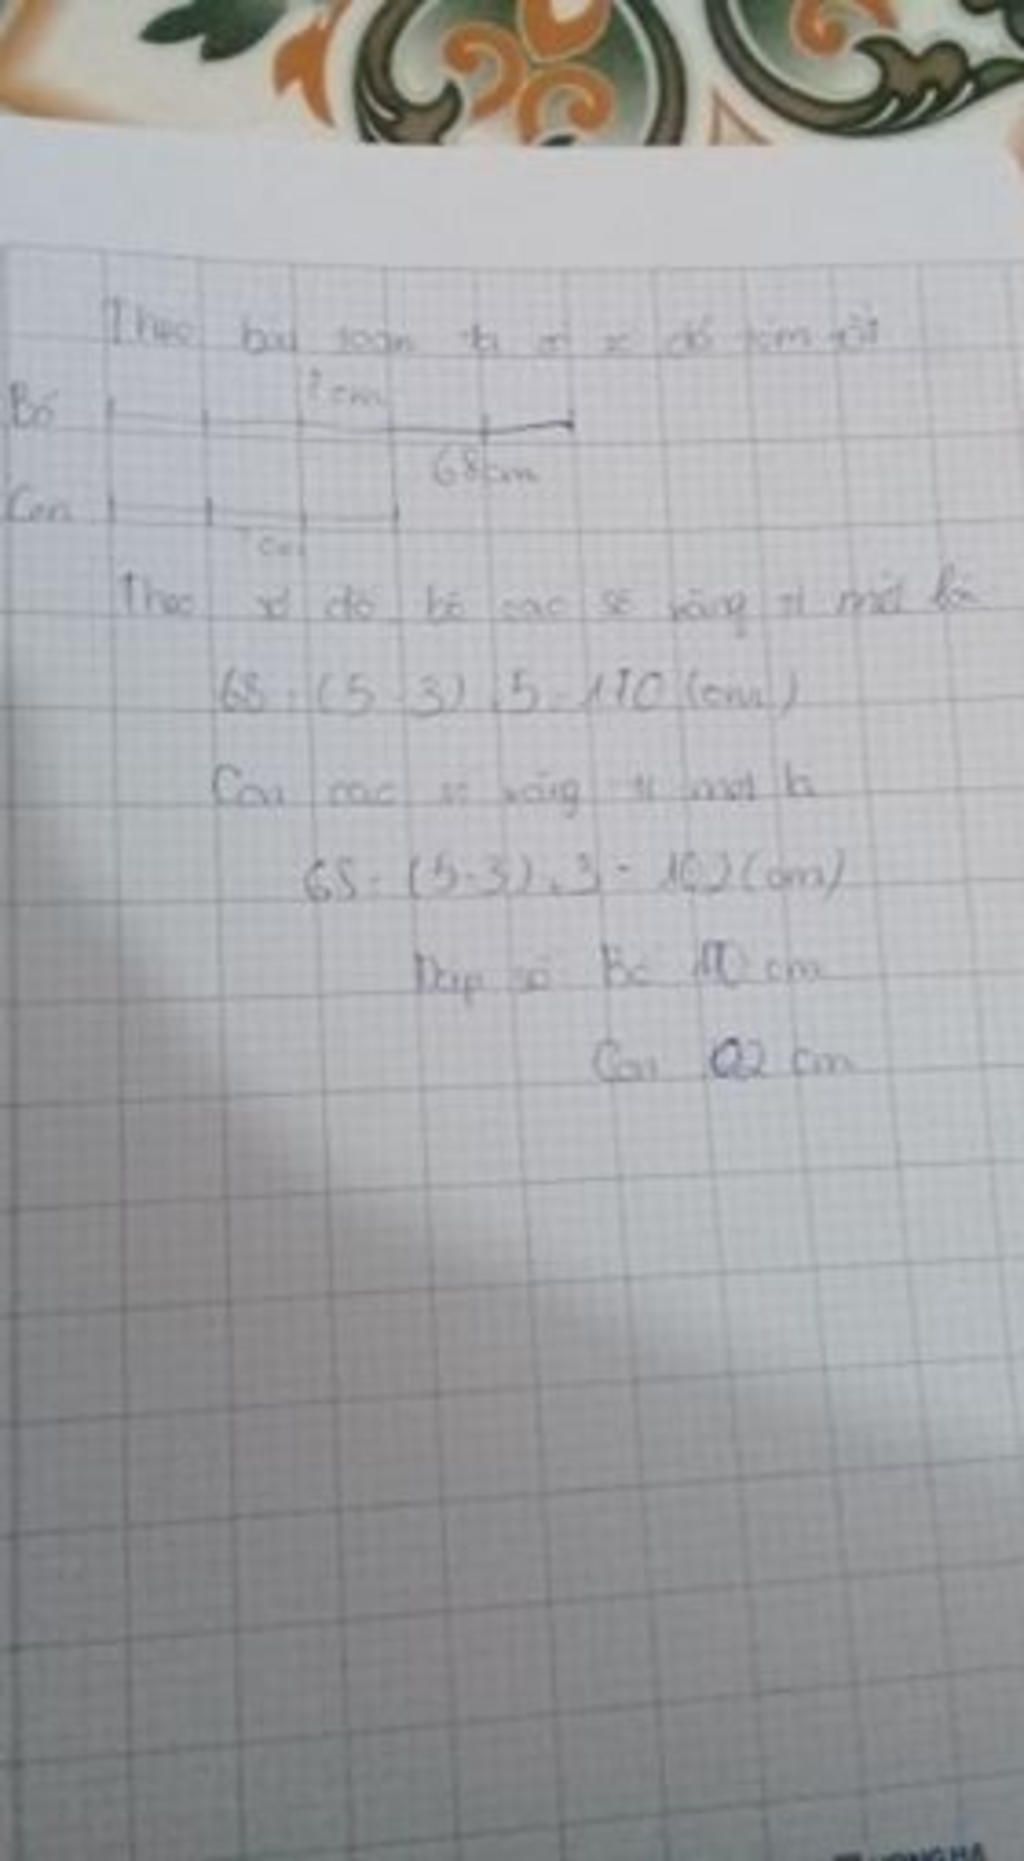 Theo bài toán ta có sơ đồ
? cm
Bố
68cm
Con
? cm
Theo sơ đồ bố cao số xăng ti mét là
68 : (5 - 3) . 5 = 170 (cm)
Con cao số xăng ti mét là
68 : (5-3) . 3 = 102 (cm)
Đáp số Bố 170 cm
Con 102 cm